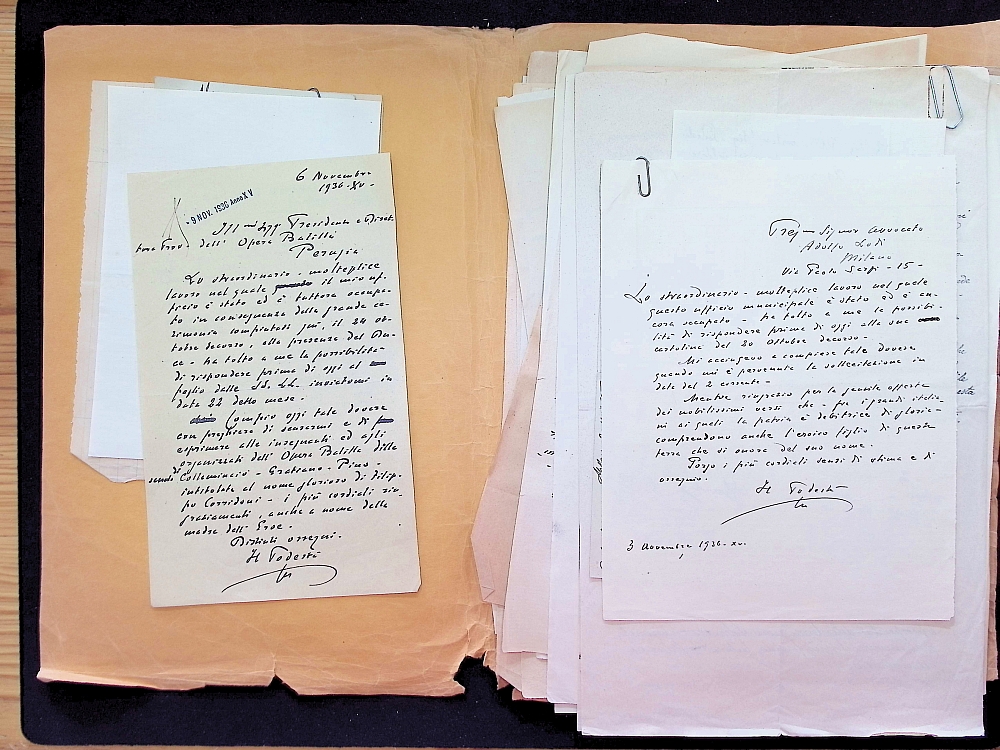 6 Novembre
1936-XV-
- 9 NOV. 1936 Anno XV
Ill mi Sigg Presidente e Dirett.
Prov. dell' Opera Balilla
Perugia
Lo straordinario - molteplice
lavoro nel quale il mio uf-
ficio è stato ed è tuttora occupa-
to in conseguenza della grande ce-
rimonia compiutasi qui, il 24 ot-
tobre decorso, alla presenza del Du-
ce - ha tolto a me la possibilità
di rispondere prima di oggi al
foglio delle SS. LL. inviatomi in
data 22 detto mese.
Compio oggi tale dovere
con preghiera di scusarmi e di
esprimere alle insegnanti ed agli
organizzati dell' Opera Balilla delle
scuole Collemincio - Grabiano - Pino -
intitolate al nome glorioso di Filip-
po Corridoni - i più cordiali rin-
graziamenti, anche a nome della
madre dell' Eroe.
Distinti ossequi.
Il Podestà
Preg mo Signor Avvocato
Adolfo Lodi
Milano
Via Paolo Sarpi - 15 -
Lo straordinario - molteplice lavoro nel quale
questo ufficio municipale è stato ed è an-
cora occupato - ha tolto a me la possibi-
lità di rispondere prima di oggi alla sua
cartolina del 20 Ottobre decorso -
Mi accingevo a compiere tale dovere
quando mi è pervenuta la sollecitazione in
data del 2 corrente -
Mentre ringrazio per la gentile offerta
dei nobilissimi versi che - fra i grandi italia-
ni ai quali la patria è debitrice di gloria -
comprendono anche l'eroico figlio di questa
terra che si onora del suo nome.
Porgo i più cordiali sensi di stima e di
ossequio.
Il Podestà
3 Novembre 1936-XV.